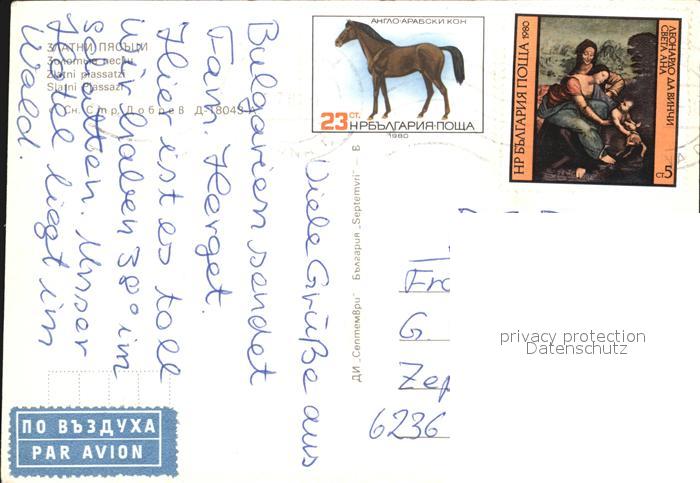 ЗЛАТНИ ПЯСЪЦИ
Золотые пески
Zlatni piassatzi
Slatni piassazi
Сн. Стр. Добрев Д-18049-
АНГЛО-АРАБСКИ КОН
23 СТ.
НРБЪЛГАРИЯ·ПОЩА
1980
НР БЪЛГАРИЯ ПОЩА 1980
ЛЕОНАРДО ДА ВИНЧИ
СВЕТА АНА
5 СТ
Viele Grüße aus
Bulgarien sendet
Fam. Herget.
Hier ist es toll
wir haben 38° im
Schatten. Unser
Hotel liegt im
Wald.
ДИ „Септември“ България „Septemvri“ - В
Fra
G.
Zep
6236
privacy protection
Datenschutz
ПО ВЪЗДУХА
PAR AVION